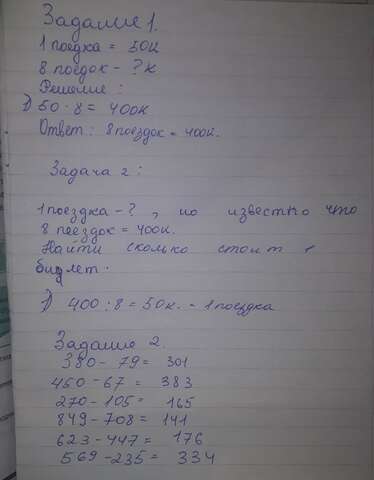 Задание 1.
1 поедка = 50к
8 поедок - ? к
Решение :
1) 50 · 8 = 400к
Ответ : 8 поездок = 400к.
Задача 2 :
1 поездка - ? , но известно что
8 поездок = 400к.
Найти сколько стоит 1
билет.
1) 400 : 8 = 50к. - 1 поездка
Задание 2.
380 - 79 = 301
450 - 67 = 383
270 - 105 = 165
849 - 708 = 141
623 - 447 = 176
569 - 235 = 334